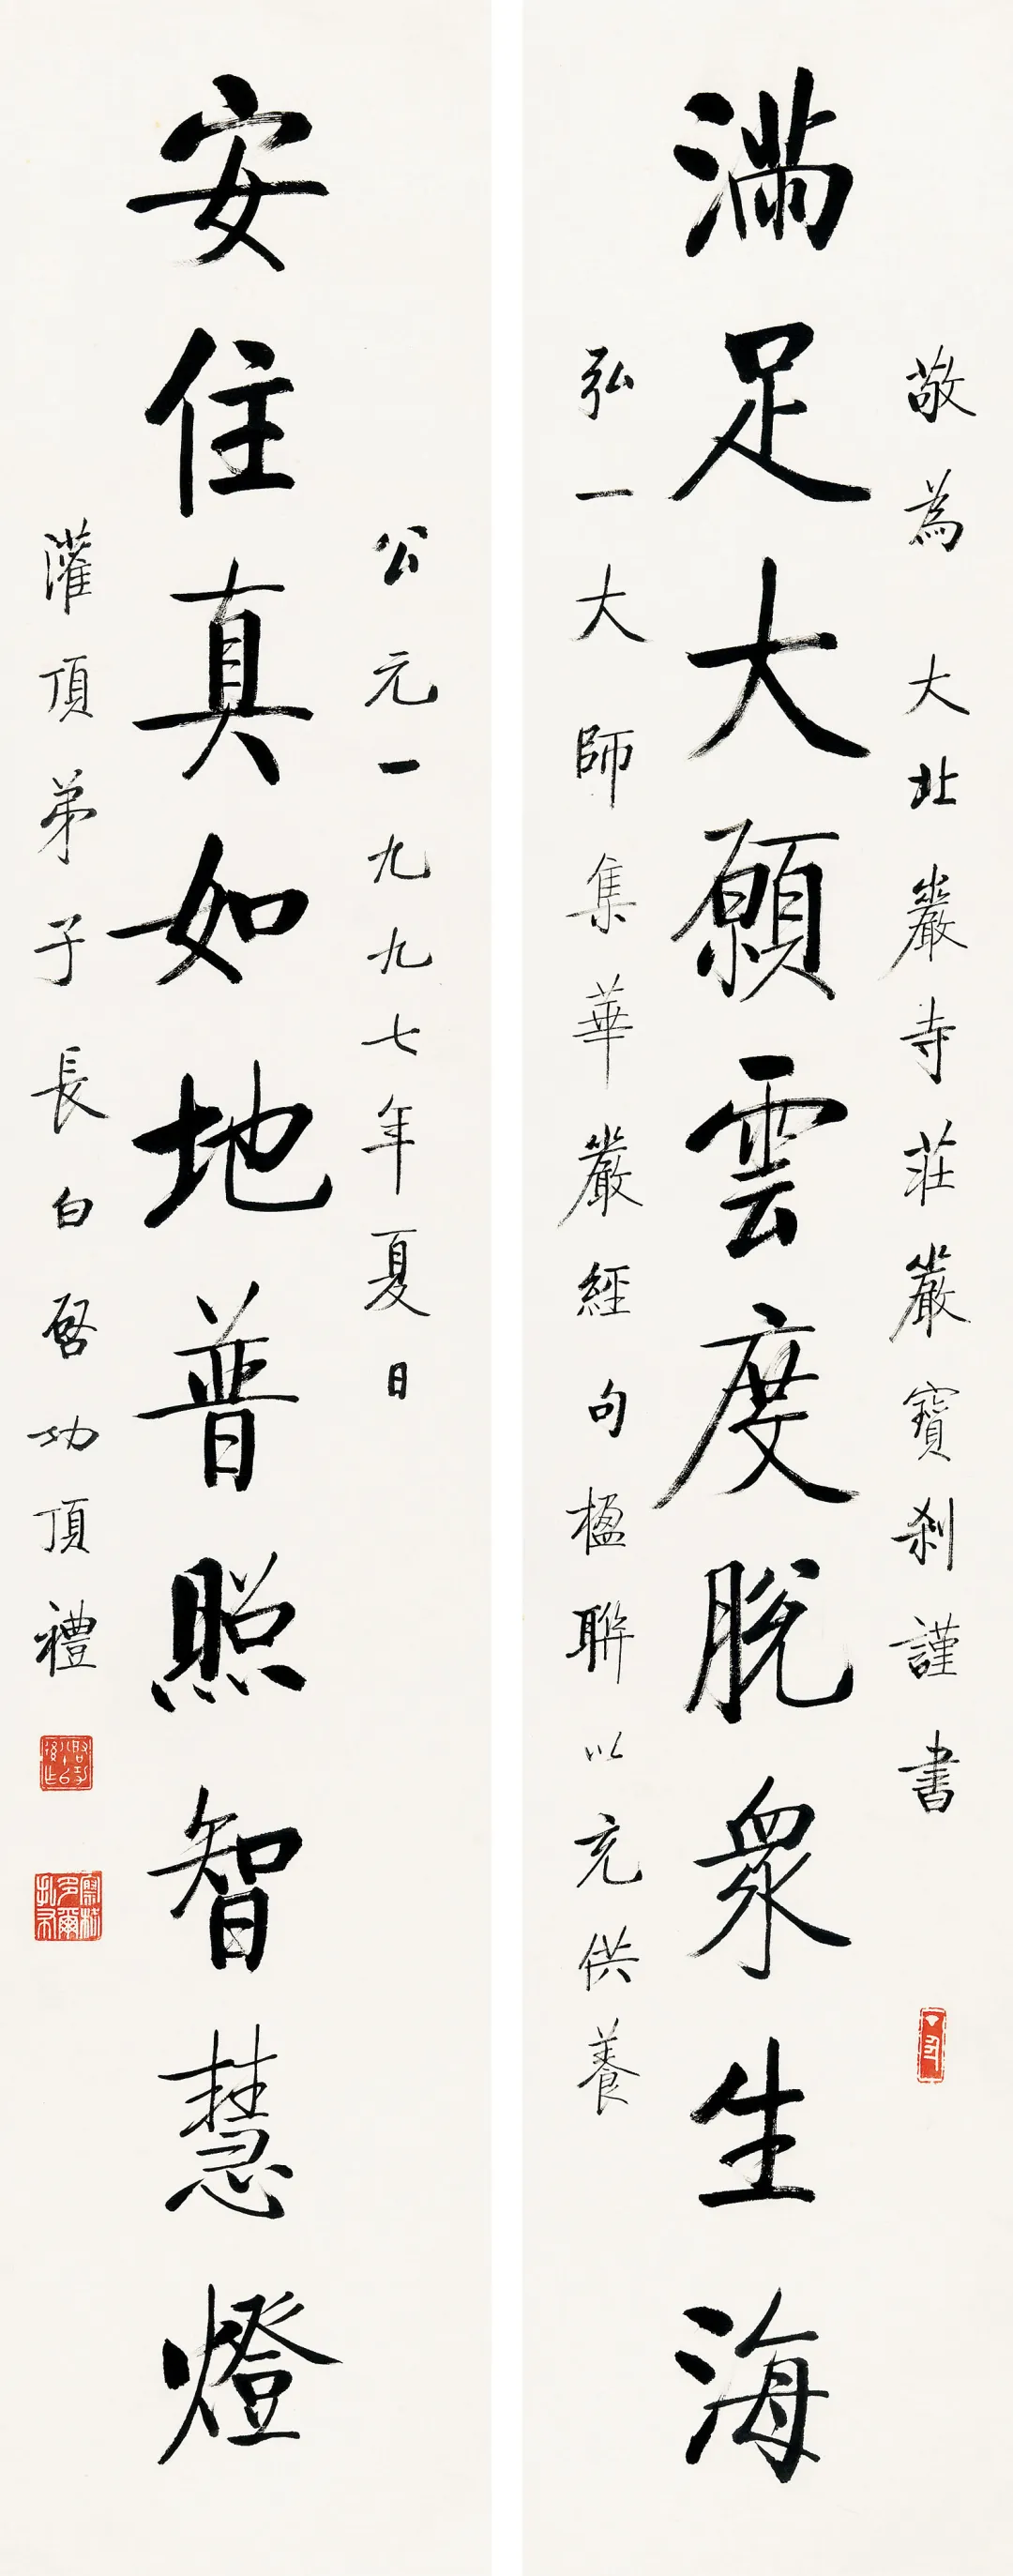 敬為 大北巖寺莊嚴寶剎謹書
滿足大願雲度脫衆生海
弘一大師集華嚴經句楹聯以充供養
公元一九九七年夏日
安住真如地普照智慧燈
灌頂弟子長白啓功頂禮